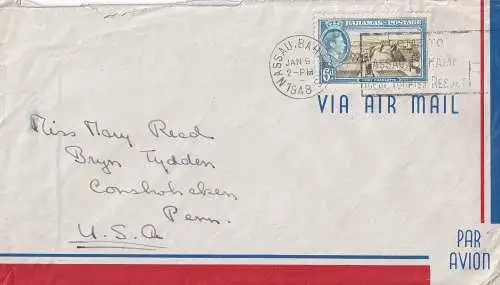 BAHAMAS·POSTAGE
NASSAU, BAH
JAN 6
2-PM
1948
6d
VIA AIR MAIL
Miss Mary Reed
Bryn Tydden
Conshohocken
Penn.
U.S.A
PAR
AVION